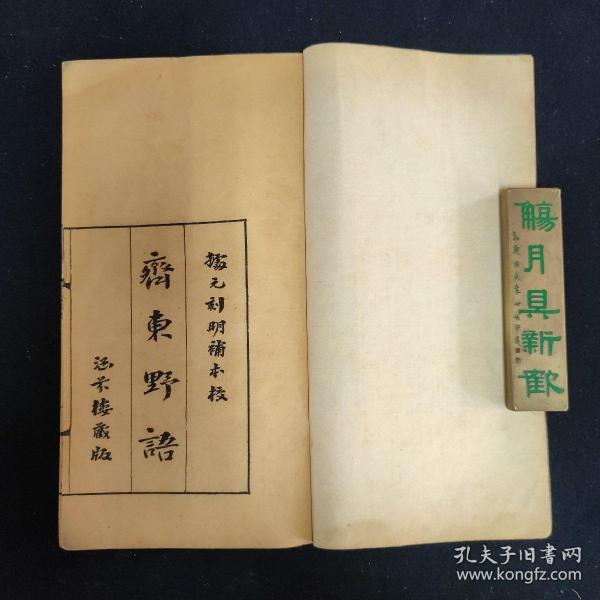 據元刻明補本校
齊東野語
涵芬樓藏版
觴月具新歡
孔夫子旧书网
www.kongfz.com